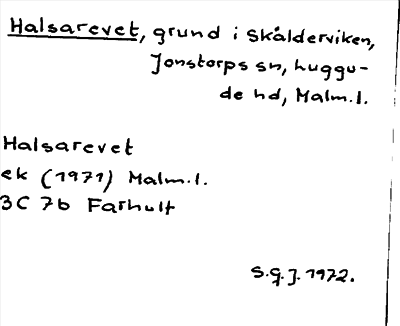 Halsarevet, grund i Skälderviken,
Jonstorps sn, Luggu-
de hd, Malm.l.
Halsarevet
ek (1971) Malm.l.
3C 7b Farhult
S.G.J. 1972.